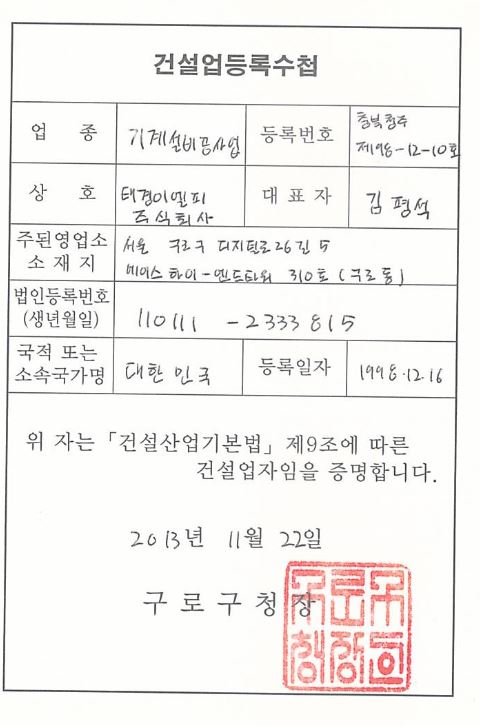 건설업등록수첩
업 종
기계설비공사업
등록번호
충북청주
제98-12-10호
상 호
태경이엘피
주식회사
대 표 자
김 평 석
주된영업소
소 재 지
서울 구로구 디지털로26길 5
에이스 하이-엔드타워 310호 (구로동)
법인등록번호
(생년월일)
110111 - 2333815
국적 또는
소속국가명
대한민국
등록일자
1998.12.16
위 자는 「건설산업기본법」 제9조에 따른
건설업자임을 증명합니다.
2013년 11월 22일
구 로 구 청 장